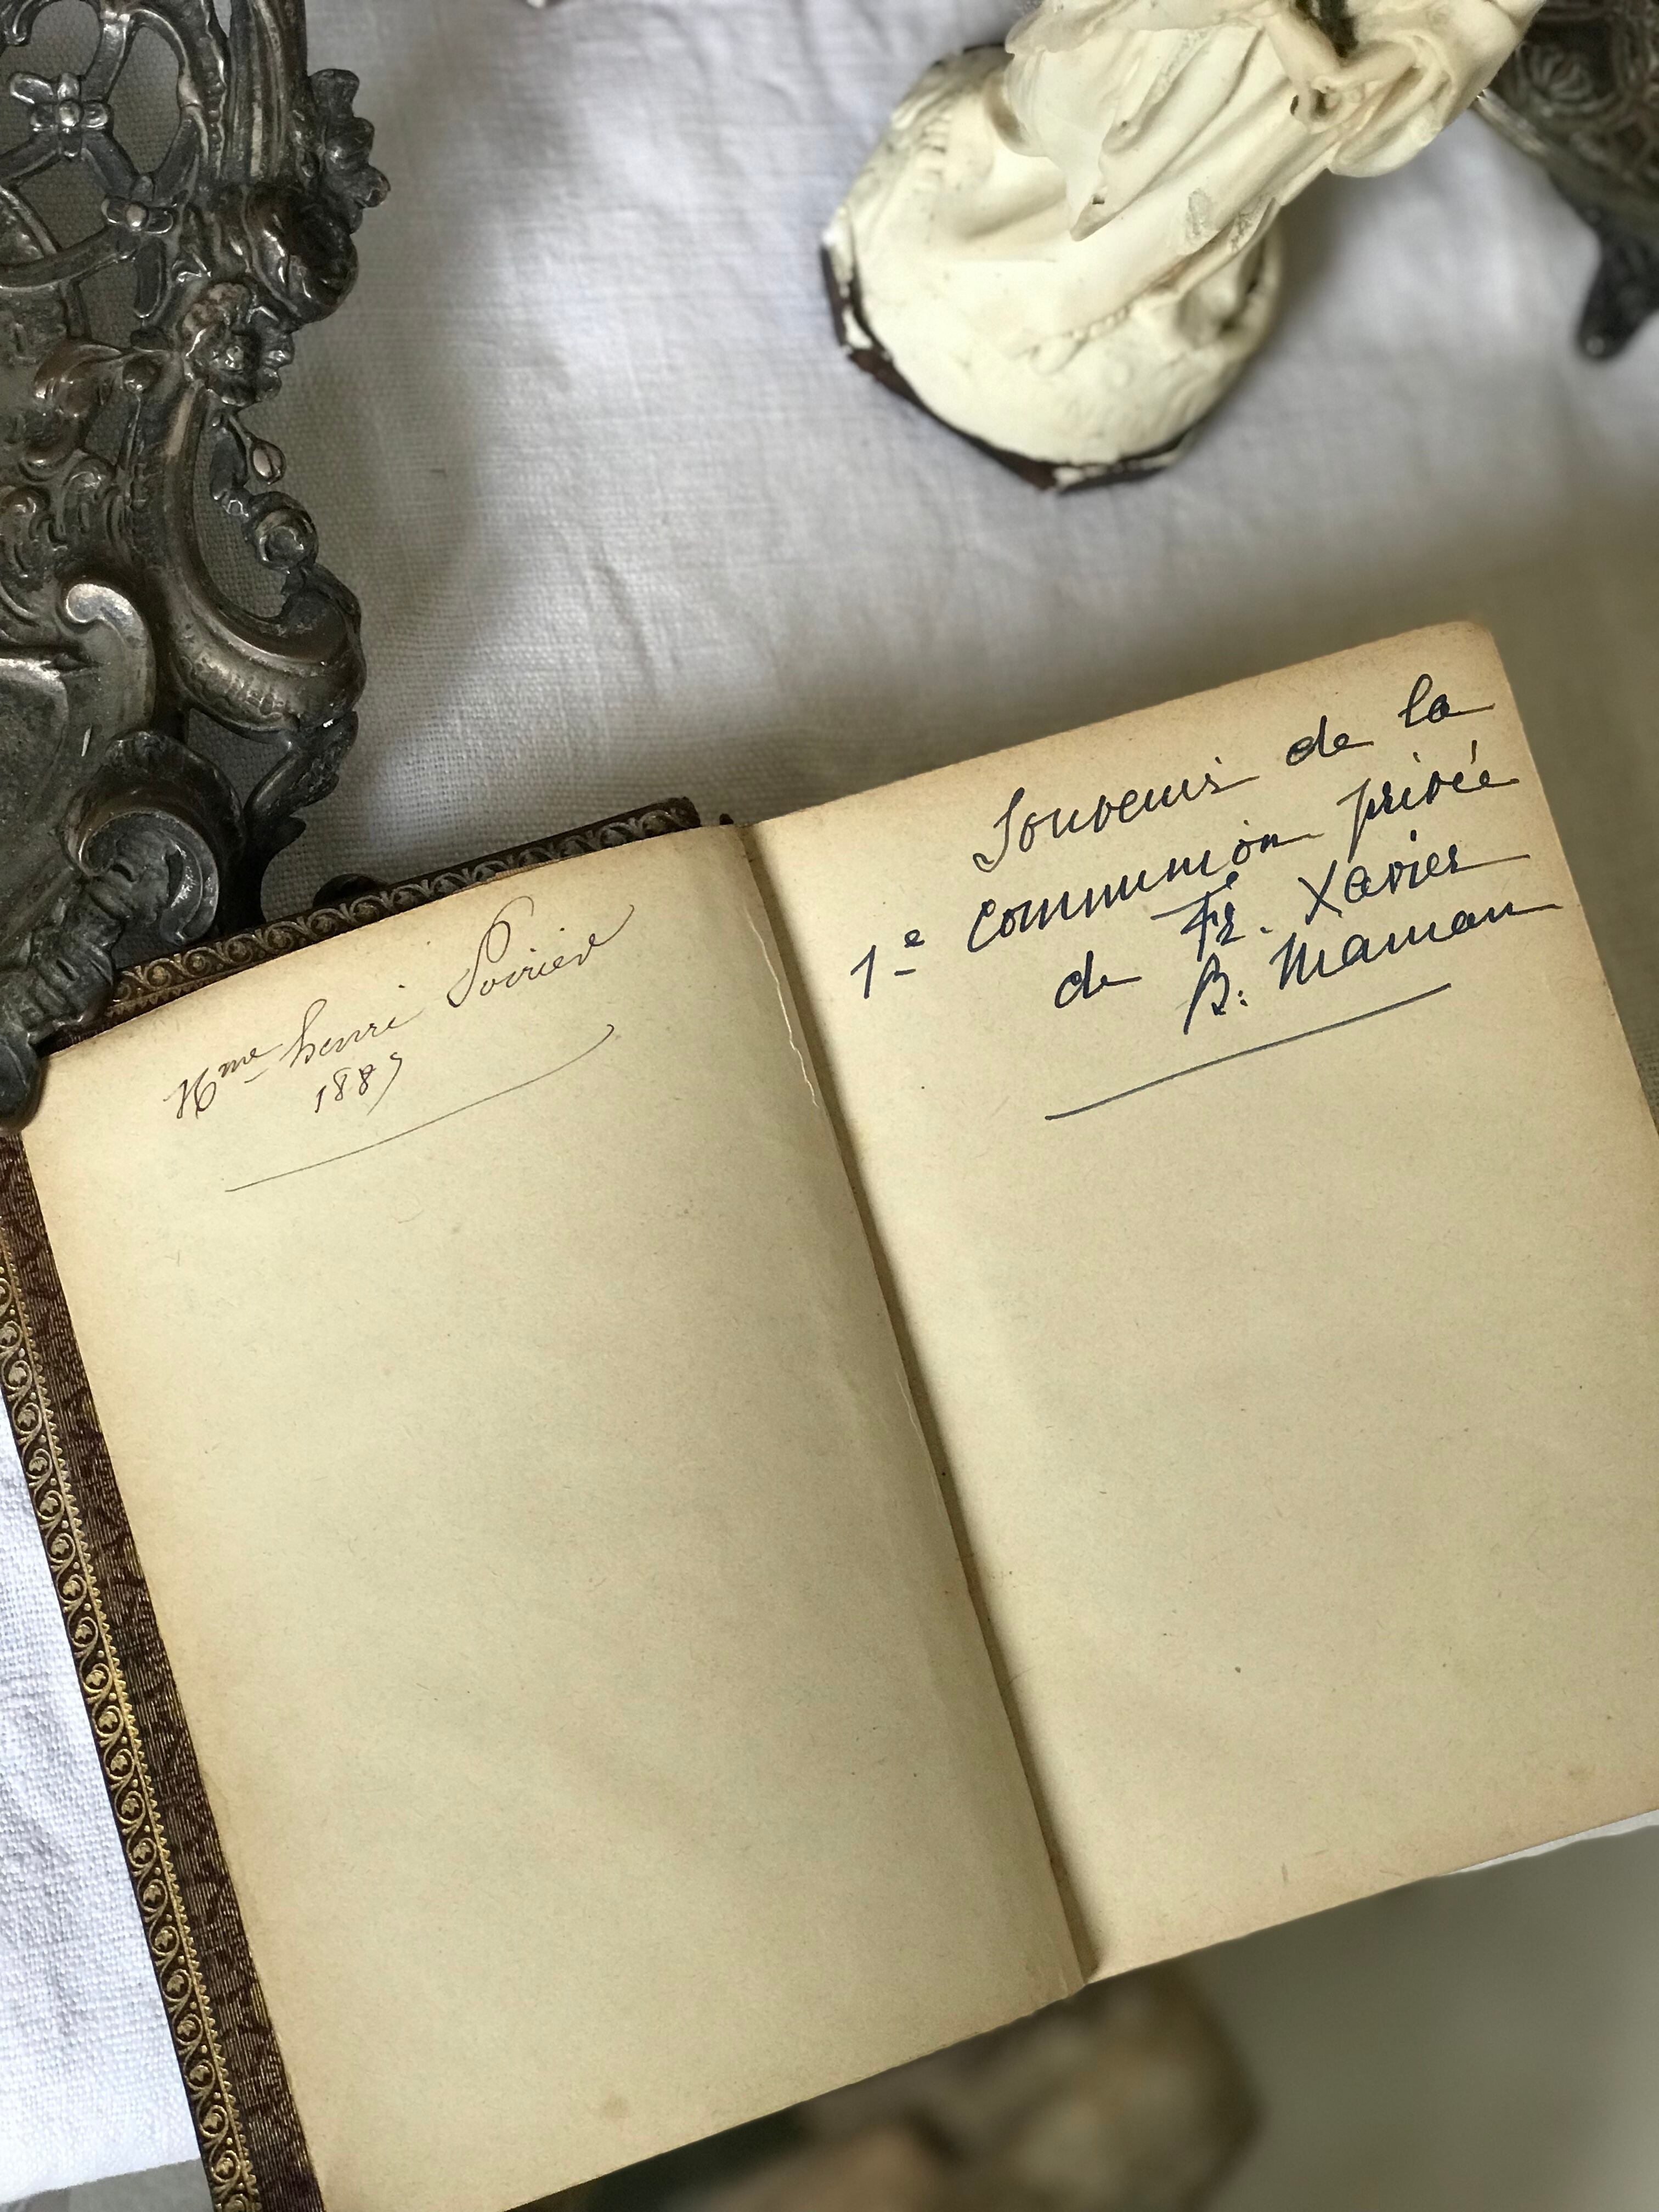 Mme henri Poirier
1889
Souvenir de la
1e communion privée
de Fr. Xavier
B. Maman